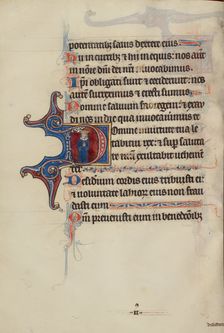 potentatib; salus dextere eius
Hii in currib; et hii in equis: nos autem
in noīe dn̄i dei nr̄i inuocabimus
Ipsi obligati sunt et ceciderunt: nos
autem surreximus et erecti sumus
Domine saluum fac regem: et exau
di nos in die qua inuocauerimus te
Domine in uirtute tua le
tabitur rex: et sup salu
tare tuū exultabit uehemen
ter
Desideriū cordis eius tribuisti ei
et uoluntate labioꝝ eius non frau
dasti eum
Qm̄ preuenisti eum in benedictōib;